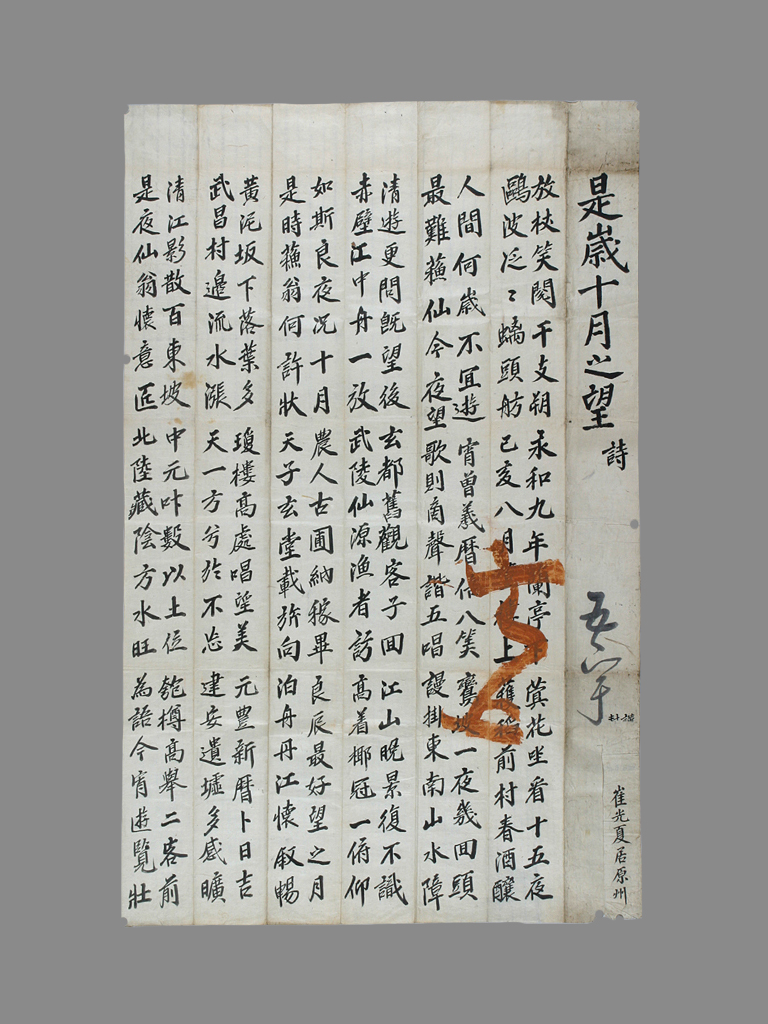 是歲十月之望 詩
崔光夏居原州
放杖笑閱干支朔 永和九年蘭亭 蓂花坐看十五夜
鷗波泛〻螭頭舫 己亥八月 上 前村春酒釀
人間何歲不宜遊 宵曾羲曆俗八笑 坡一夜幾回頭
最難蘓仙今夜望 歌則商聲諧五唱 謾掛東南山水障
清遊更問旣望後 玄都舊觀客子回 江山晩景復不識
赤壁江中舟一放 武陵仙源漁者訪 髙着椰冠一俯仰
如斯良夜况十月 農人古圃納稼畢 良辰最好望之月
是時蘓翁何許狀 天子玄堂載旂向 泊舟丹江懷叙暢
黃泥坂下落葉多 瓊樓髙處唱望美 元豊新曆卜日吉
武昌村邊流水漲 天一方兮於不忘 建安遺墟多感曠
清江影散百東坡 中元叶數以土位 匏樽髙舉二客前
是夜仙翁懷意匝 北陸藏陰方水旺 為語今宵遊覽壯